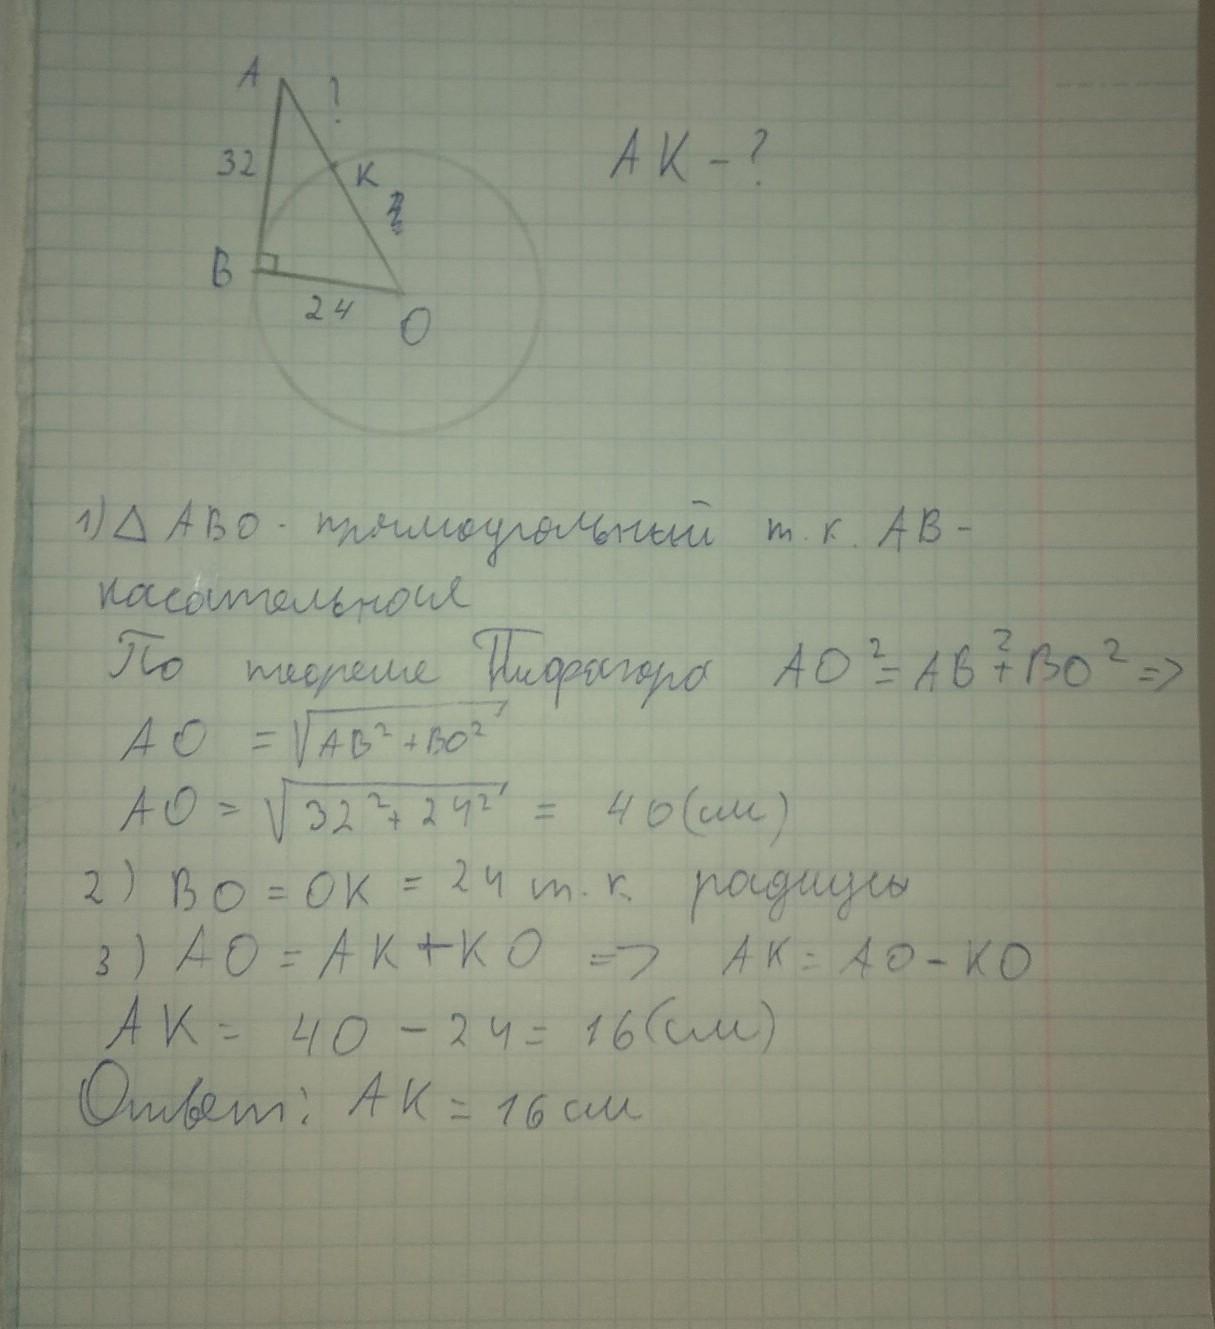 A
?
32
K
AK - ?
B
24
O
1) △ ABO - прямоугольный т.к. AB -
касательная
По теореме Пифагора AO² = AB² + BO² =>
AO = √AB² + BO²
AO = √32² + 24² = 40 (см)
2) BO = OK = 24 т.к. радиусы
3) AO = AK + KO => AK = AO - KO
AK = 40 - 24 = 16 (см)
Ответ: AK = 16 см